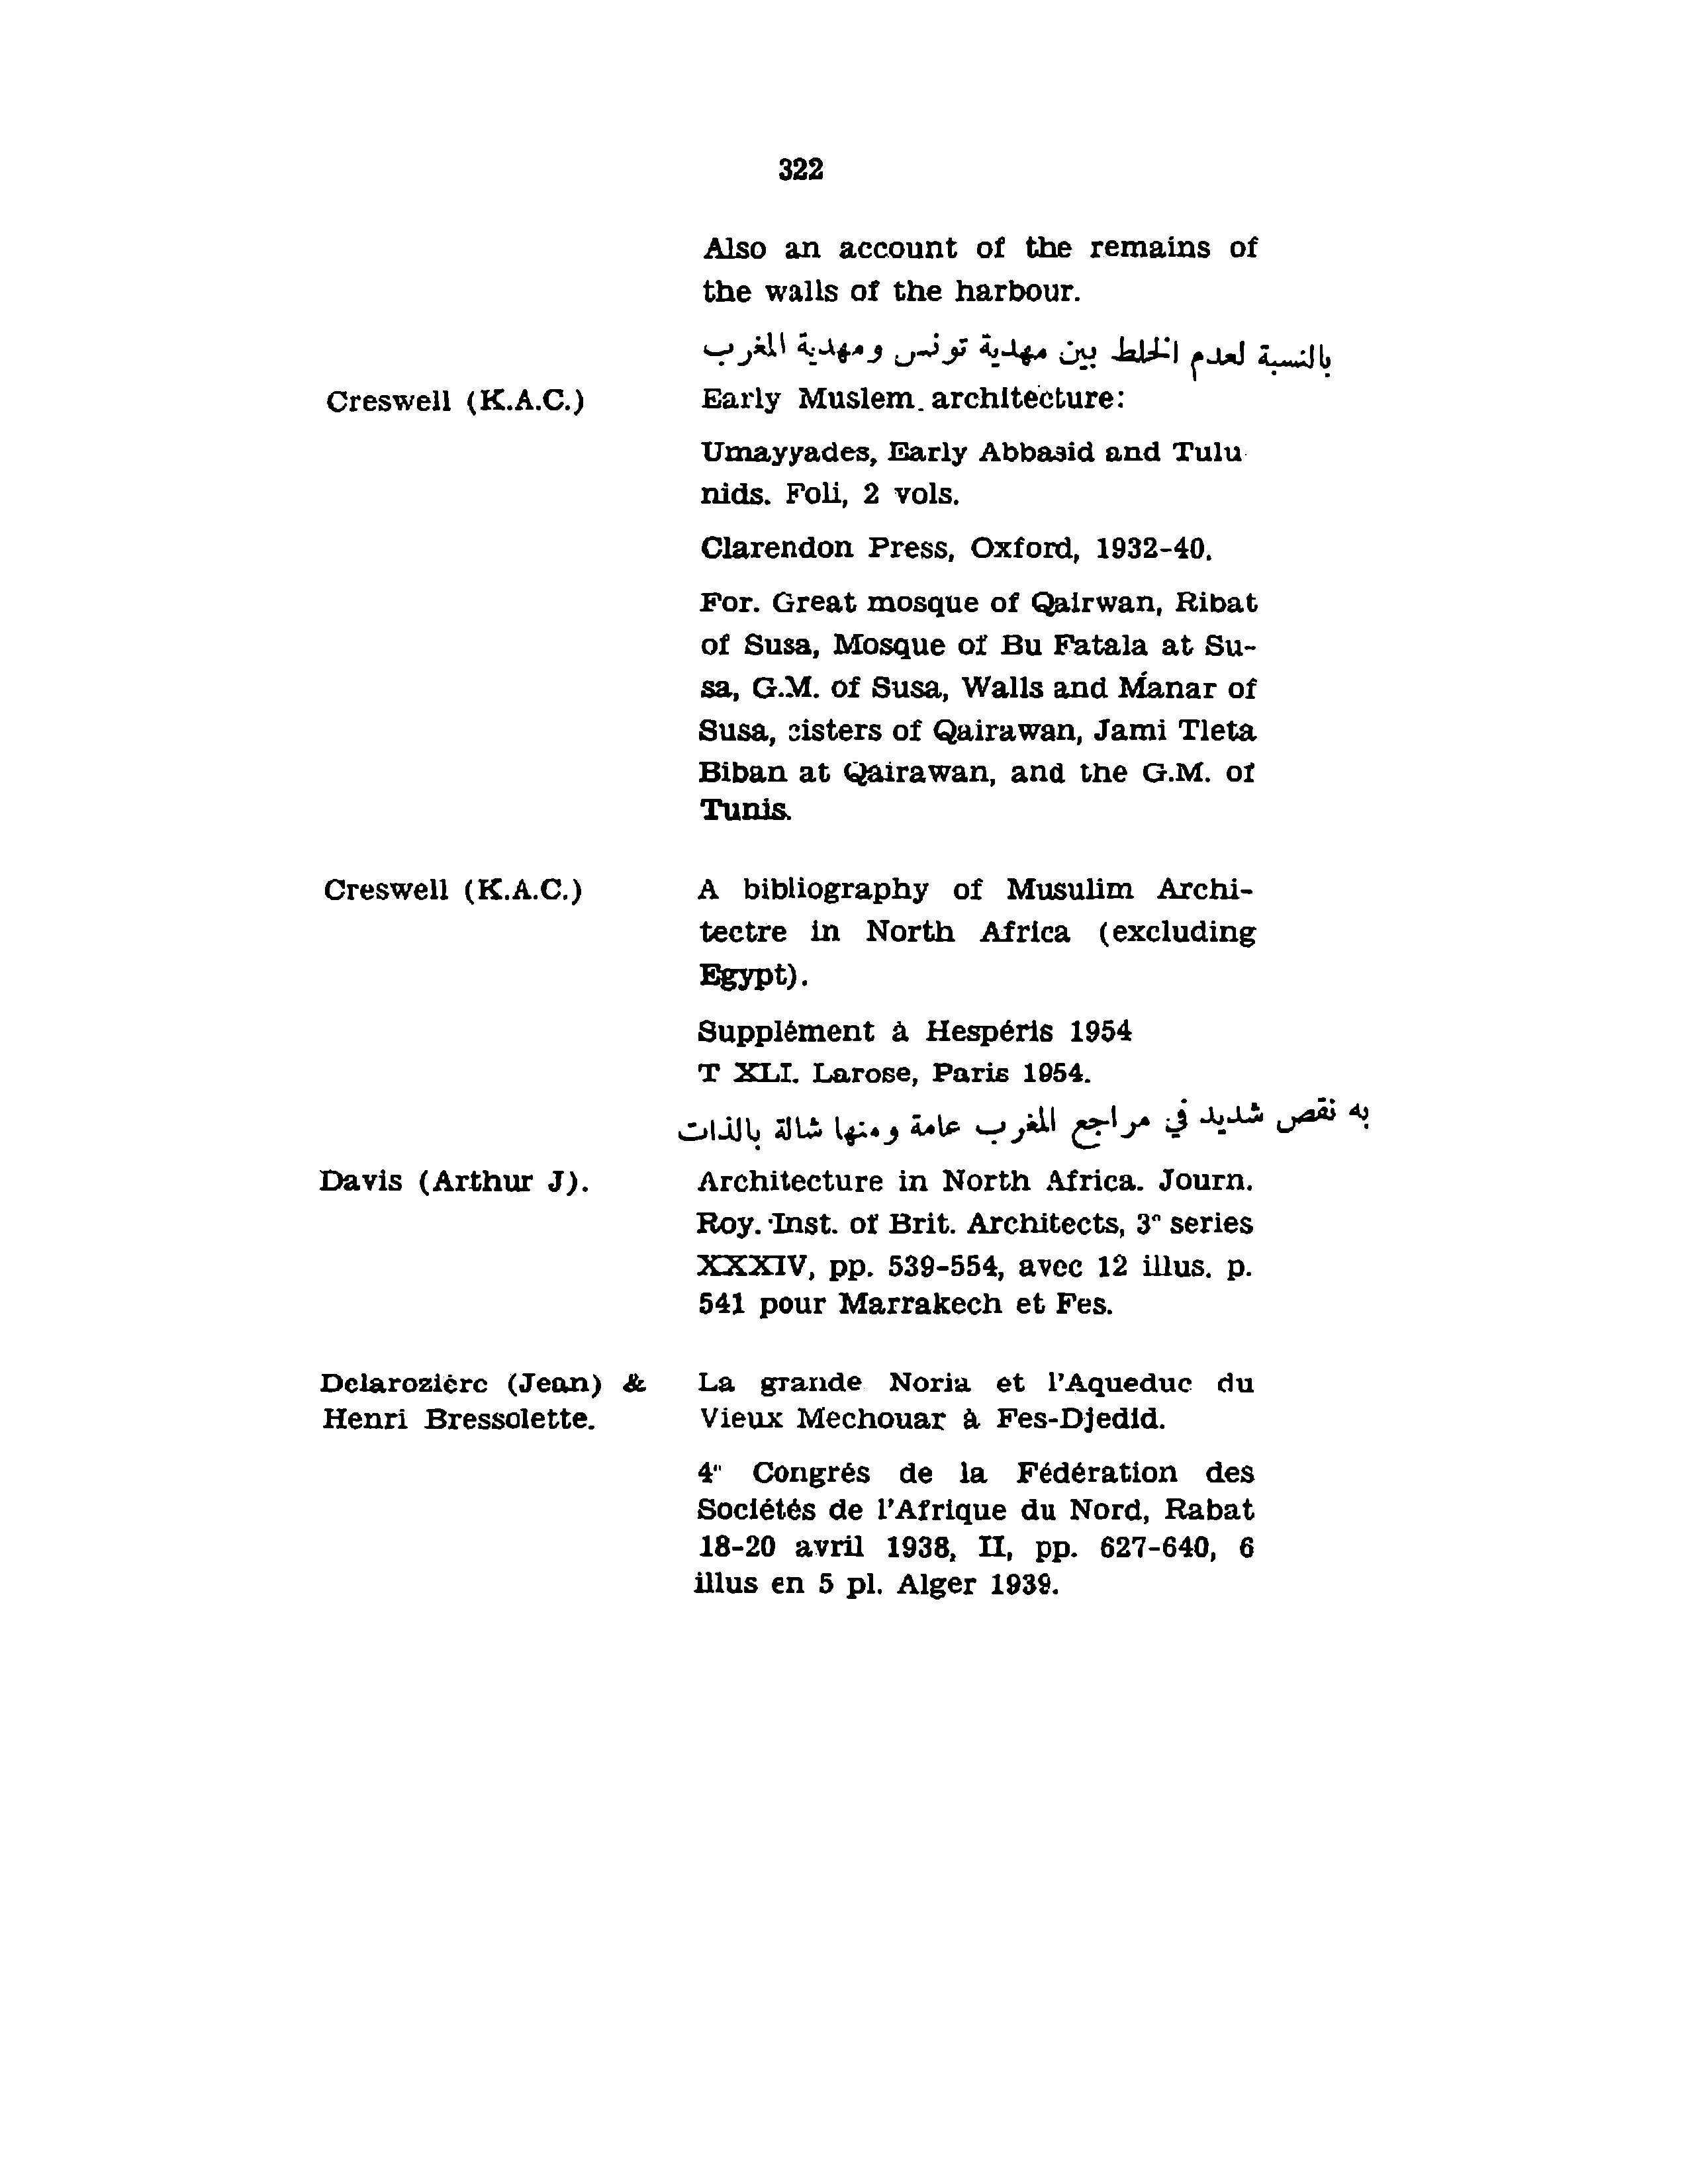 322
Also an account of the remains of
the walls of the harbour.
بالنسبة لعدم الخلط بين مهدية تونس ومهدية المغرب
Creswell (K.A.C.) Early Muslem. architecture:
Umayyades, Early Abbasid and Tulu
nids. Foli, 2 vols.
Clarendon Press, Oxford, 1932-40.
For. Great mosque of Qairwan, Ribat
of Susa, Mosque of Bu Fatala at Su-
sa, G.M. of Susa, Walls and Manar of
Susa, cisters of Qairawan, Jami Tleta
Biban at Qairawan, and the G.M. of
Tunis.
Creswell (K.A.C.) A bibliography of Musulim Archi-
tectre in North Africa (excluding
Egypt).
Supplément à Hespéris 1954
T XLI. Larose, Paris 1954.
به نقص شديد في مراجع المغرب عامة ومنها شالة بالذات
Davis (Arthur J). Architecture in North Africa. Journ.
Roy. Inst. of Brit. Architects, 3" series
XXXIV, pp. 539-554, avec 12 illus. p.
541 pour Marrakech et Fes.
Delarozière (Jean) & La grande Noria et l'Aqueduc du
Henri Bressolette. Vieux Mechouar à Fes-Djedid.
4" Congrés de la Fédération des
Sociétés de l'Afrique du Nord, Rabat
18-20 avril 1938, II, pp. 627-640, 6
illus en 5 pl. Alger 1939.